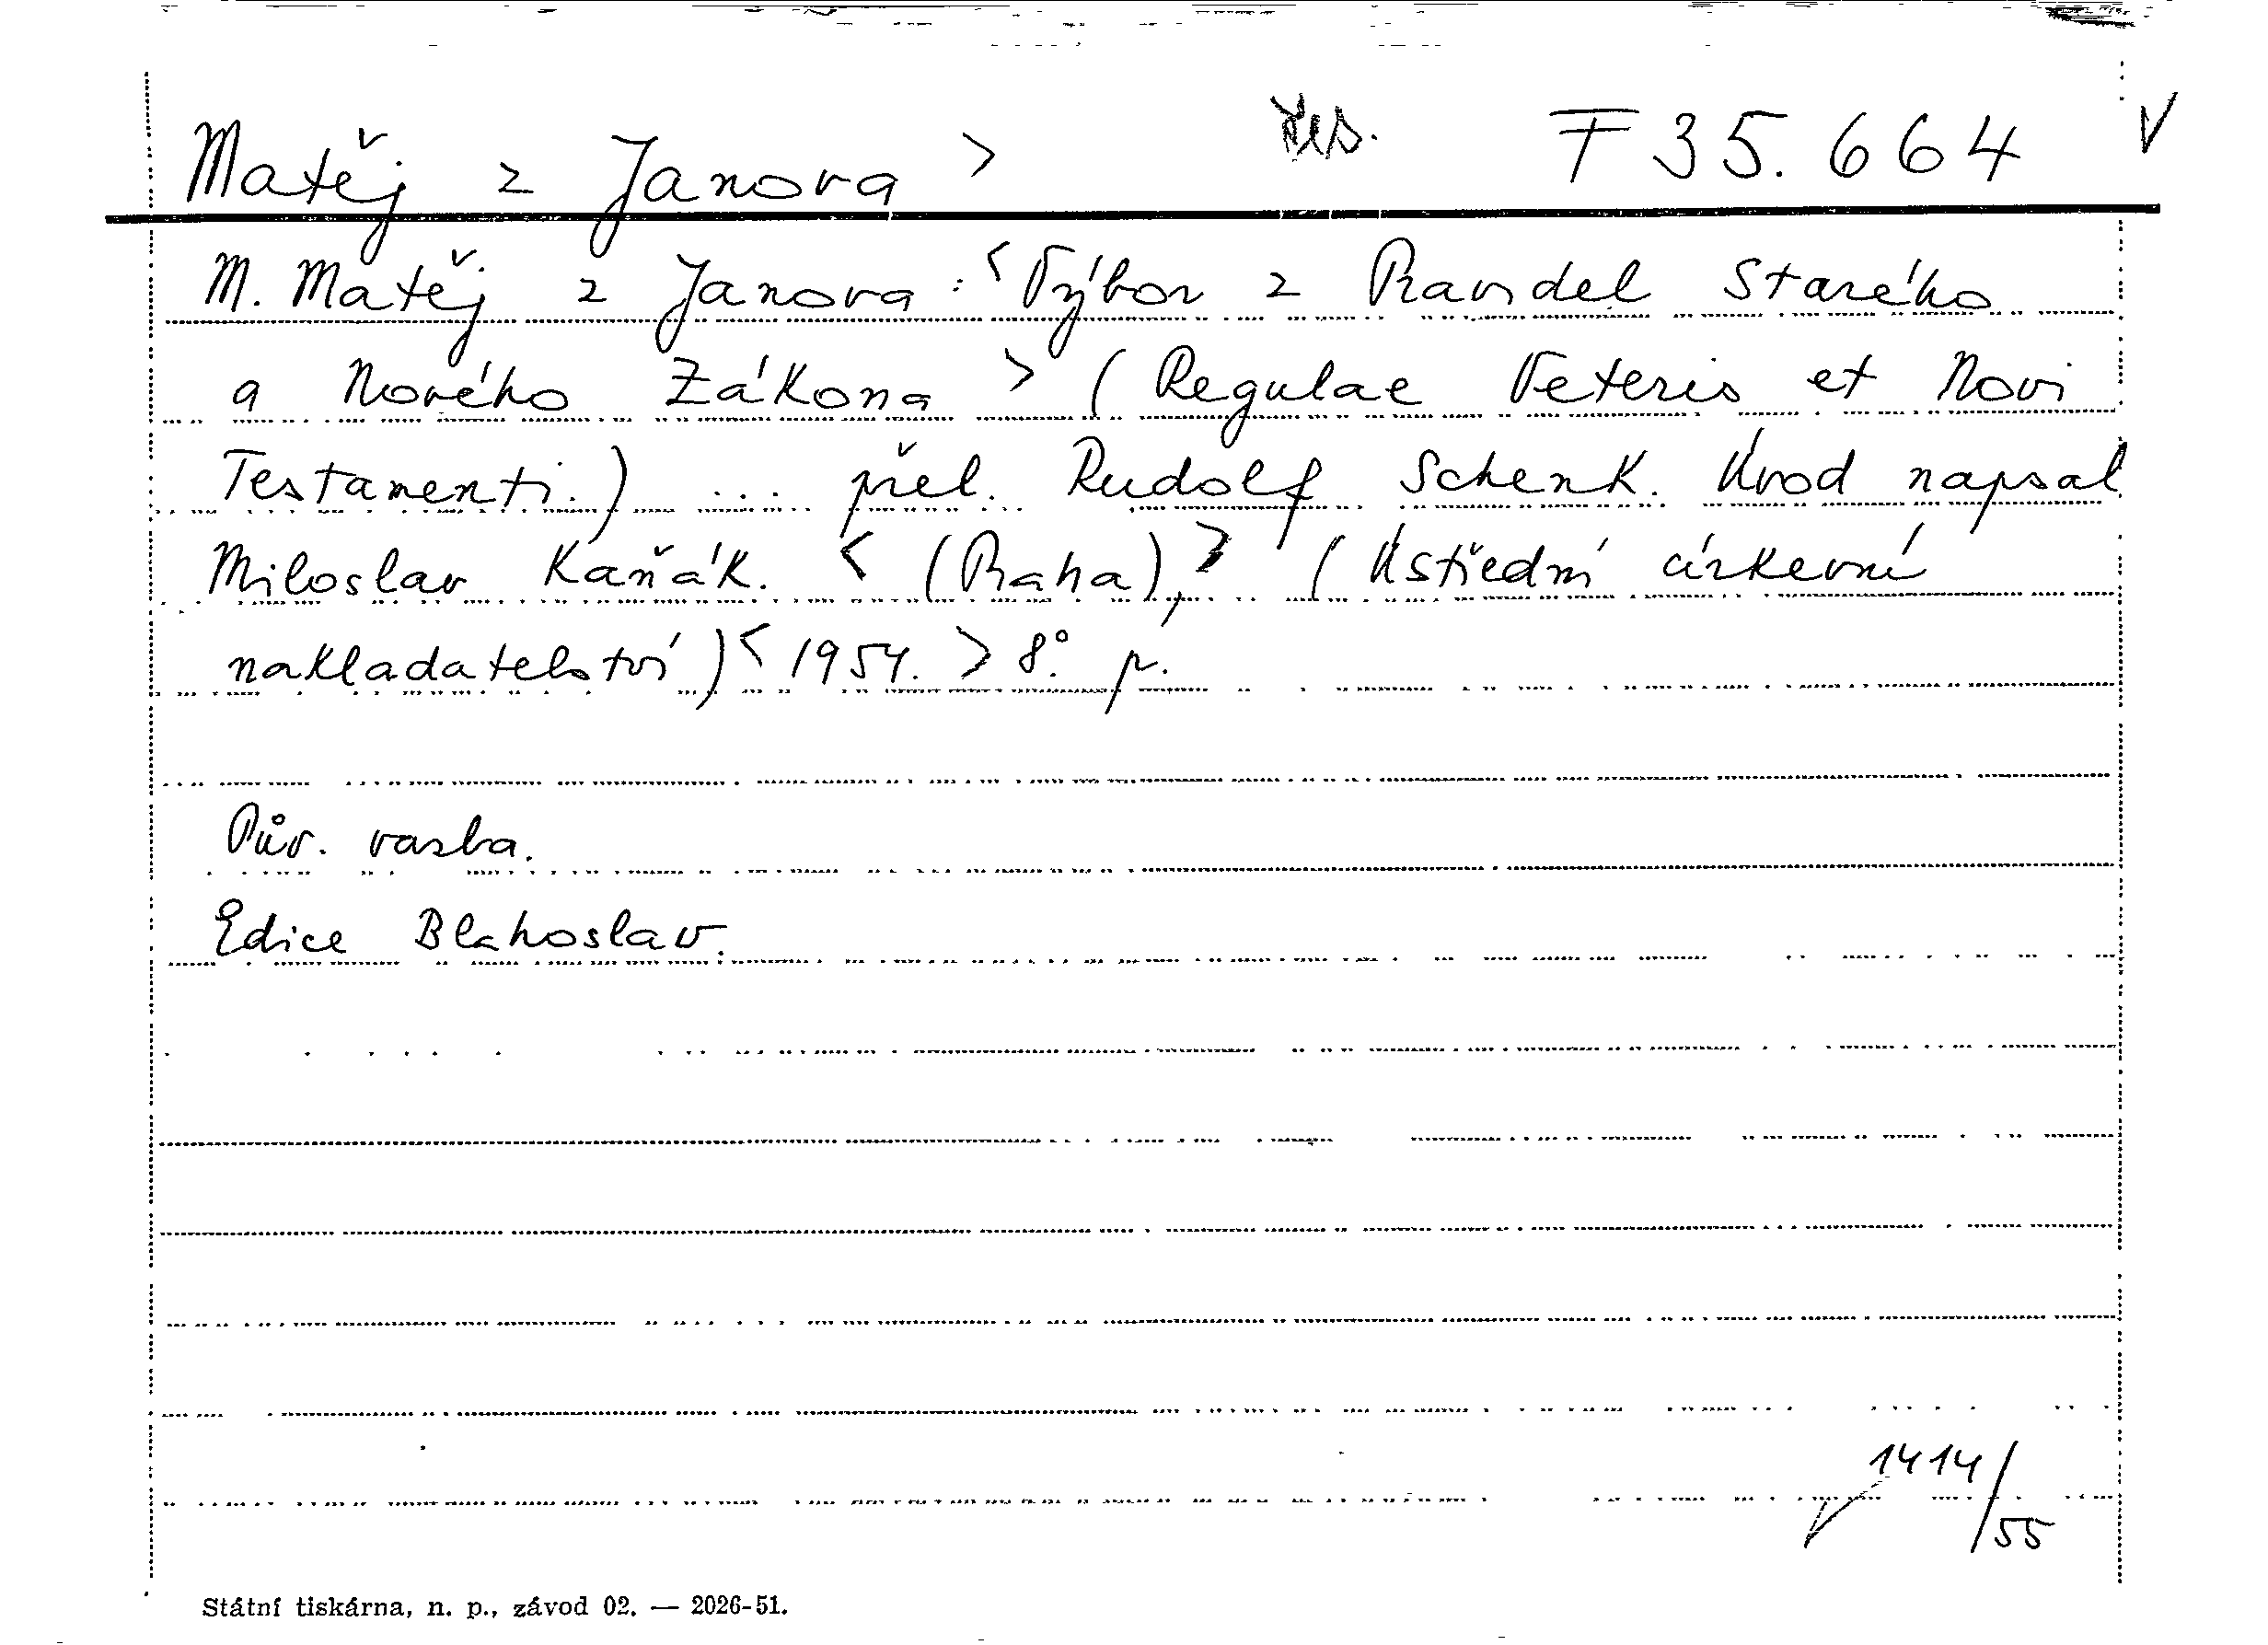 Matěj z Janova > řes. F 35.664 V
M. Matěj z Janova: < Výbor z Pravidel Starého
a Nového Zákona > (Regulae Veteris et Novi
Testamenti.) ... přel. Rudolf Schenk. Úvod napsal
Miloslav Kaňák. < (Praha), > (Ústřední církevní
nakladatelství) < 1954. > 8°. p.
Pův. vazba.
Edice Blahoslav.
1414/55
Státní tiskárna, n. p., závod 02. — 2026-51.